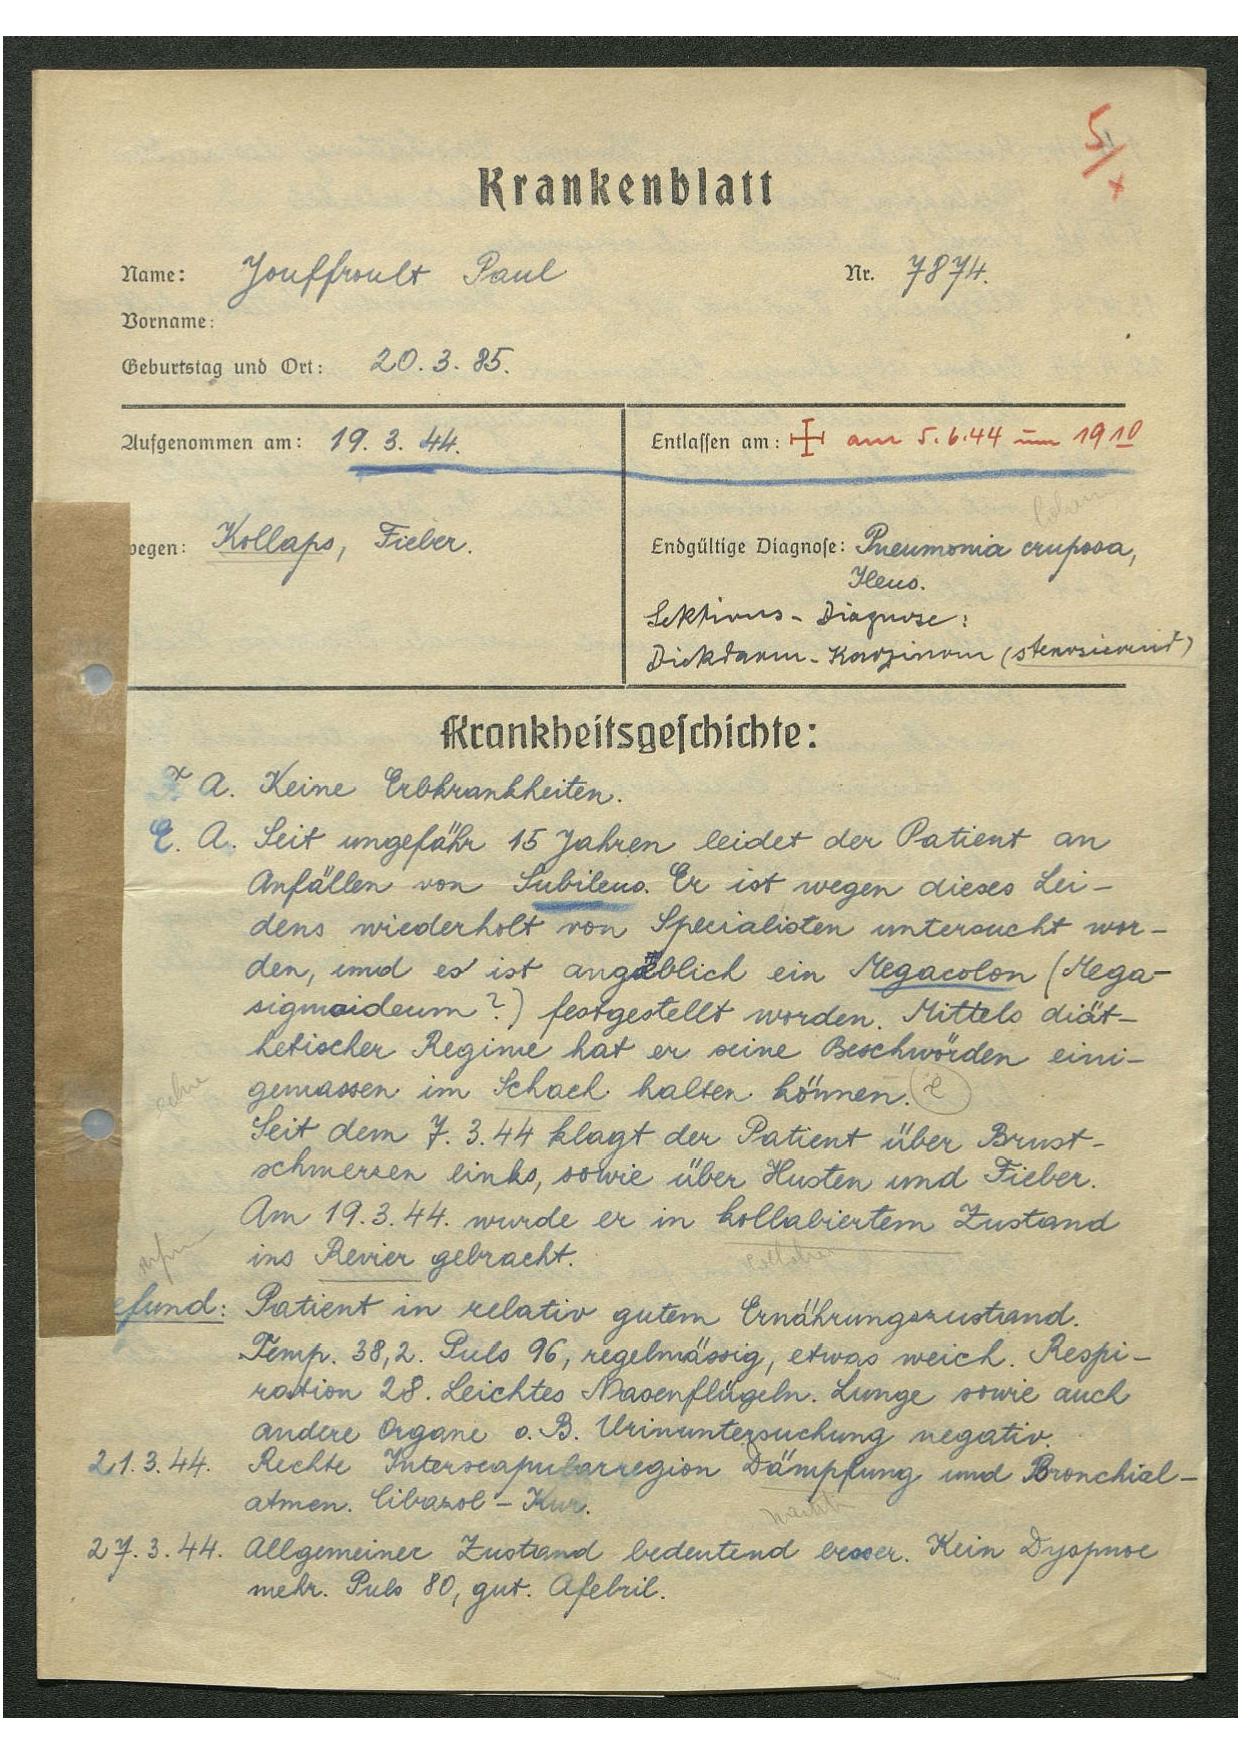 5/x
Krankenblatt
Name: Jouffroult Paul Nr. 7874.
Vorname:
Geburtstag und Ort: 20. 3. 85.
Aufgenommen am: 19. 3. 44.
Entlassen am: am 5. 6. 44 um 19 10
wegen: Kollaps, Fieber.
Endgültige Diagnose: Pneumonia cruposa,
Ileus.
Sektions-Diagnose:
Dickdarm-Karzinom (stenosierend)
Krankheitsgeschichte:
F. A. Keine Erbkrankheiten.
E. A. Seit ungefähr 15 Jahren leidet der Patient an
Anfällen von Subileus. Er ist wegen dieses Lei-
dens wiederholt von Specialisten untersucht wor-
den, und es ist angeblich ein Megacolon (Mega-
sigmoideum?) festgestellt worden. Mittels diät-
hetischer Regime hat er seine Beschwörden eini-
gemassen im Schach halten können.
Seit dem 7. 3. 44 klagt der Patient über Brust-
schmerzen links, sowie über Husten und Fieber.
Am 19. 3. 44. wurde er in kollabiertem Zustand
ins Revier gebracht.
efund: Patient in relativ gutem Ernährungszustand.
Temp. 38,2. Puls 96, regelmässig, etwas weich. Respi-
ration 28. Leichtes Nasenflügeln. Lunge sowie auch
andere Organe o. B. Urinuntersuchung negativ.
21. 3. 44. Rechte Interscapularregion Dämpfung und Bronchial-
atmen. Cibazol - Kur.
27. 3. 44. Allgemeiner Zustand bedeutend besser. Kein Dyspnoe
mehr. Puls 80, gut. Afebril.